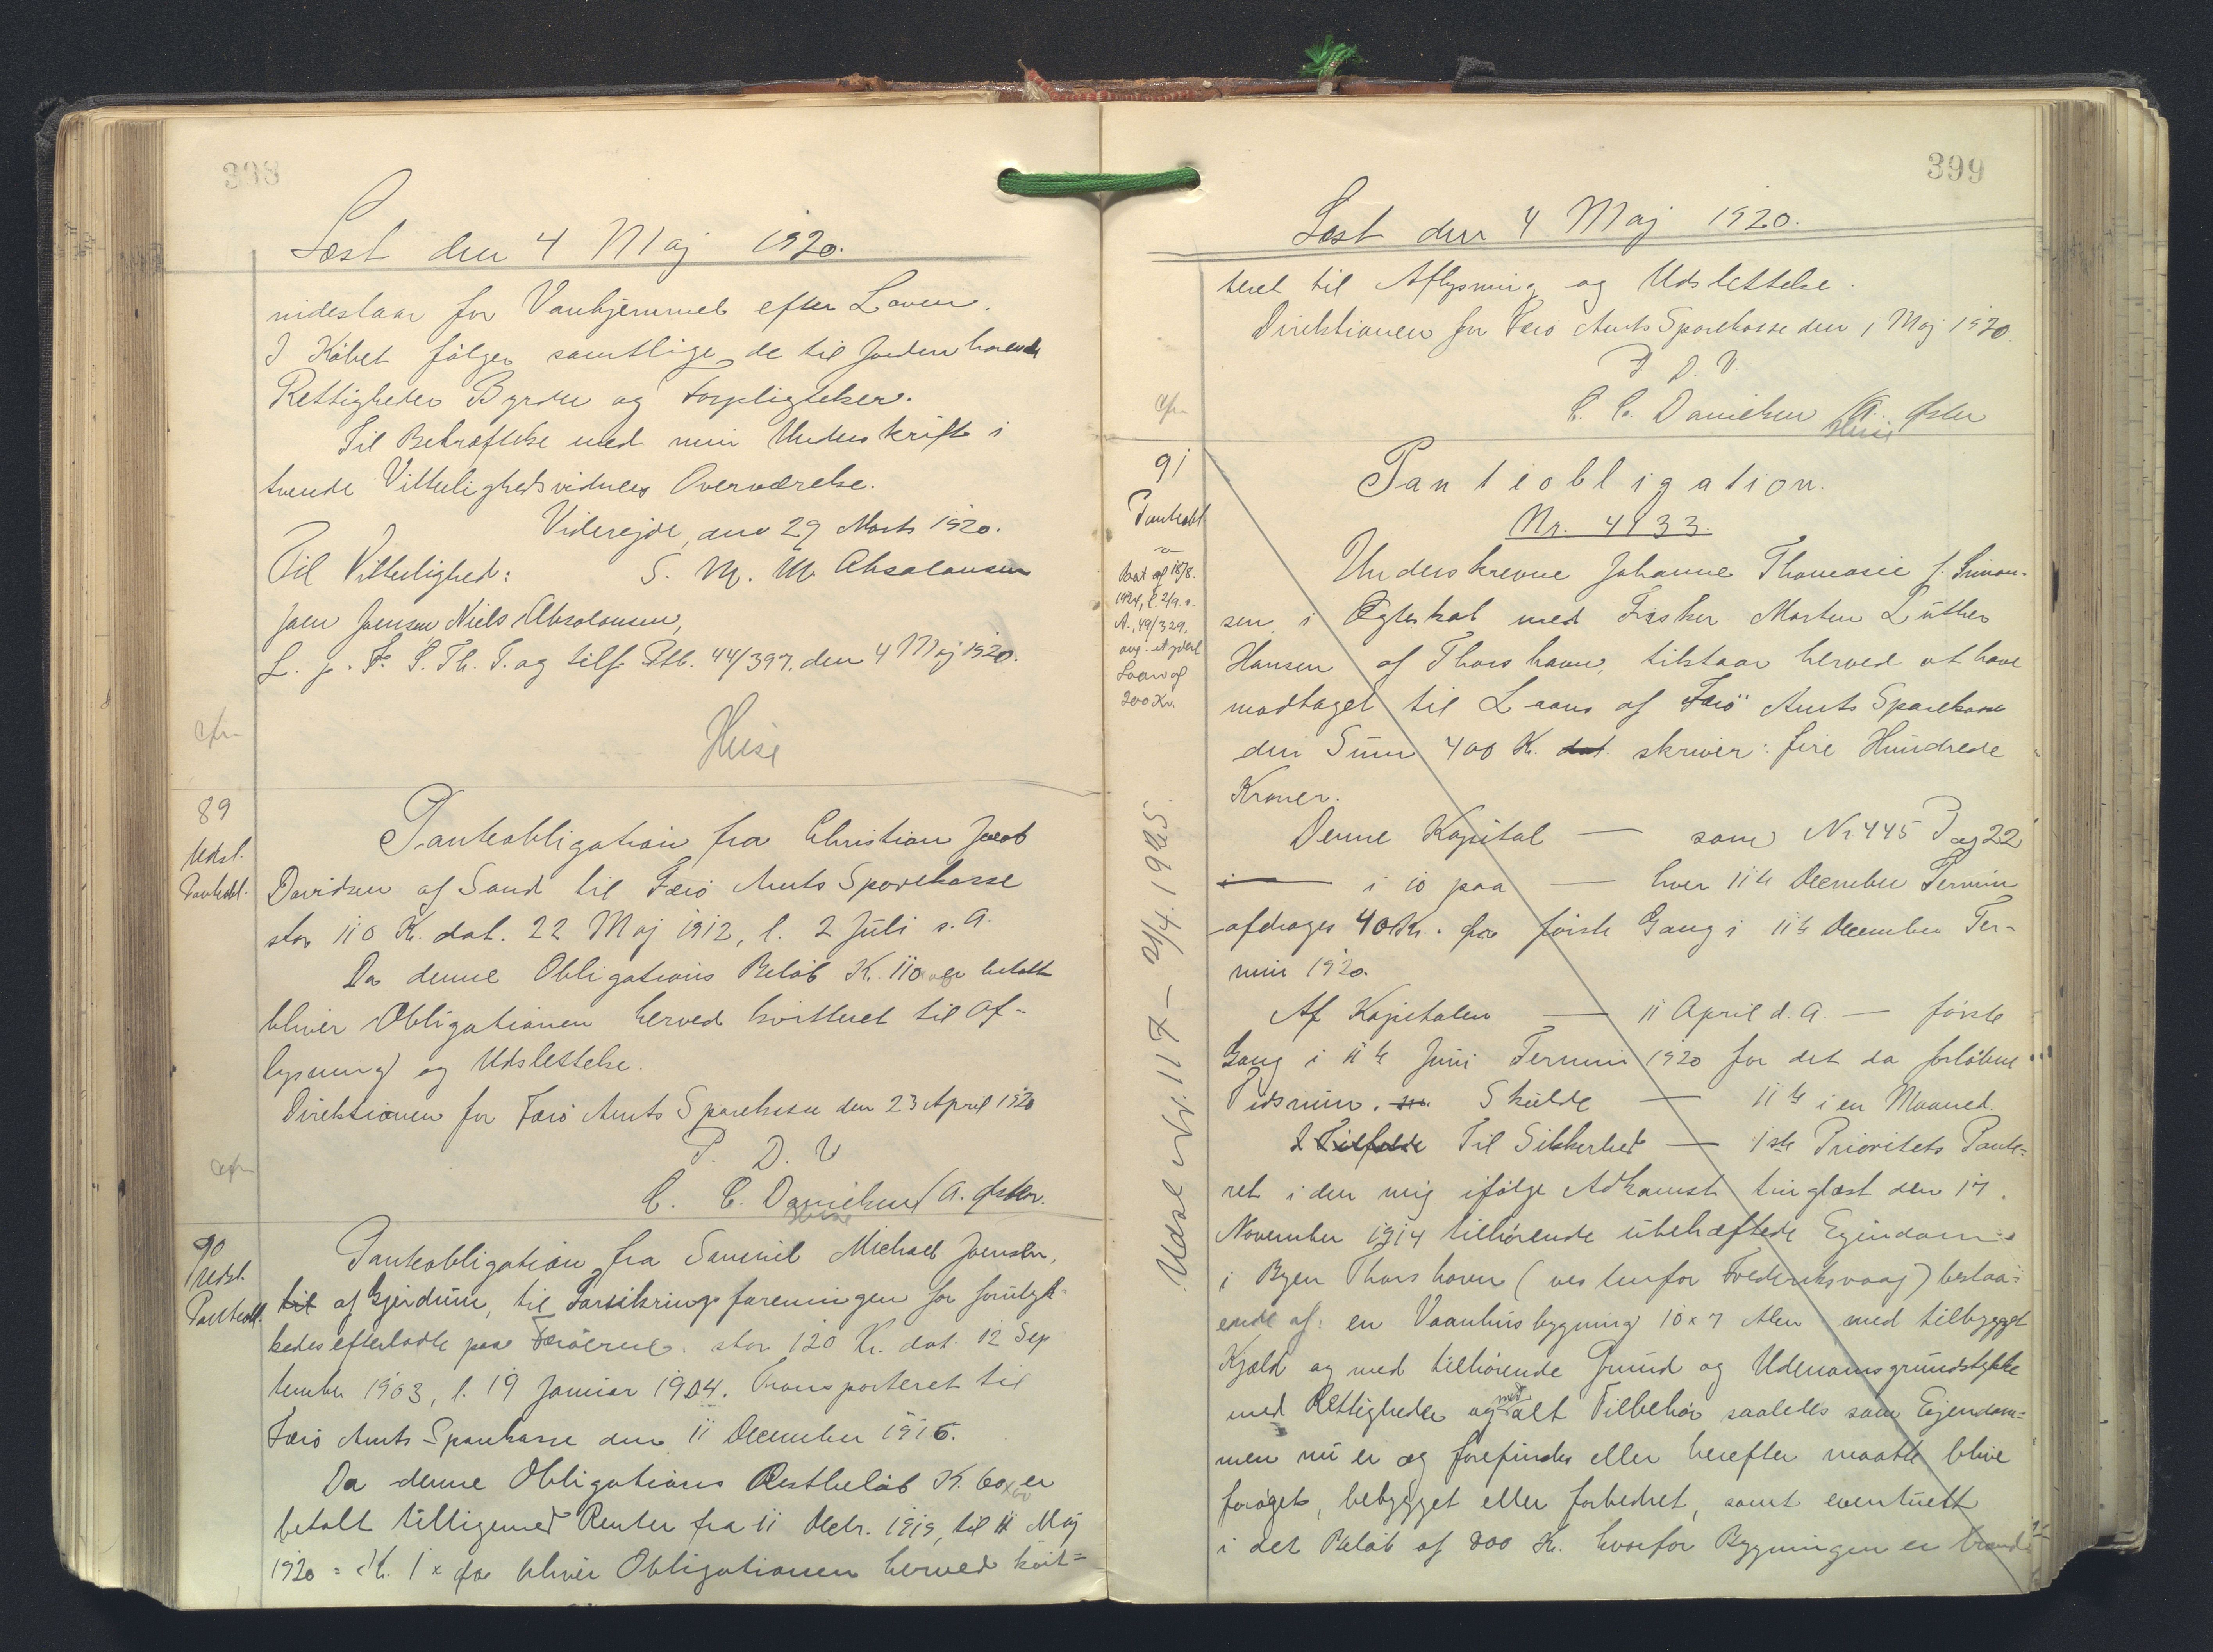 398
Læst den 4 Maj 1920.
indestaar for Vanhjemmel efter Loven.
I Købet følger samtlige de til Jorden hørende
Rettigheder Byrder og Forpligtelser.
Til Bekræftelse med min Underskrift i
tvende Vitterlighedsvidners Overværelse.
Viderejde, den 29 Marts 1920.
Til Vitterlighed: S. M. M. Absalonsen
Joen Joensen Niels Absalonsen,
L. p. F. S. Th. T. og tilf. Ptb. 44/397. den 4 Maj 1920.
cfr
Huse
89
Udsl.
Pantobl.
Panteobligation fra Christian Jacob
Davidsen af Sand til Færø Amts Sparekasse
stor 110 K. dat. 22 Maj 1912, l. 2 Juli s. A.
Da denne Obligations Beløb K. 110 er betalt
bliver Obligationen herved kvitteret til Af-
lysning og Udslettelse.
Direktionen for Færø Amts Sparekasse den 23 April 1920
P. D. V
cfr
C. C. Danielsen / A. Øster.
Huse
90
Udsl.
Pantobl.
Panteobligation fra Samuel Michael Joensen,
til af Gjerdum, til Forsikringsforeningen for forulyk-
kedes efterladte paa Færøerne, stor 120 Kr. dat. 12 Sep
tember 1903, l. 19 Januar 1904. Transporteret til
Færø Amts Sparekasse den 11 December 1916.
Da denne Obligations Restbeløb K. 60 er
betalt tilligemed Renter fra 11 Decbr. 1919 til 11 Maj
1920 = K. 1 bliver Obligationen herved kvit=
399
Læst den 4 Maj 1920.
teret til Aflysning og Udslettelse.
Direktionen for Færø Amts Sparekasse den 1 Maj 1920.
P. D. V.
cfr
C. C. Danielsen / A. Øster
Huse
91
Pantobl
1924, l. 2/9. s.
A., 49/329,
ang. et yderl
Laan af
200 Kr.
Udsl Nr. 117 - 21/4. 1925.
Panteobligation.
Nr. 4133.
Underskrevne Johanne Thomasie f. Simon-
sen, i Ægteskab med Fisker Morten Luther
Hansen af Thorshavn, tilstaar herved at have
modtaget til Laans af Færø Amts Sparekasse
den Sum 400 K. dat skriver: fire Hundrede
Kroner.
Denne Kapital — som Nr 445 Pag 22
i — i 10 paa — hver 11te December Termin
afdrages 40 Kr. første Gang i 11te December Ter-
min 1920.
Af Kapitalen — 11 April d. A. — første
Gang i 11te Juni Termin 1920 for det da forløbne
Tidsrum. Skulde — 11te i en Maaned.
I Tilfælde Til Sikkerhed — 1ste Prioritets Pante-
ret i den mig ifølge Adkomst tinglæst den 17.
November 1914 tilhørende ubehæftede Ejendom
i Byen Thorshavn (vestenfor Frederiksvaag) bestaa=
ende af: en Vaanhusbygning 10 x 7 Alen med tilbygget
Kjæld og med tilhørende Grund og Udenomsgrundstykke
med Rettigheder og med alt Tilbehør saaledes som Ejendom=
men nu er og forefindes eller herefter maatte blive
forøget, bebygget eller forbedret, samt eventuelt
i det Beløb af 800 K. hvorfor Bygningen er brand